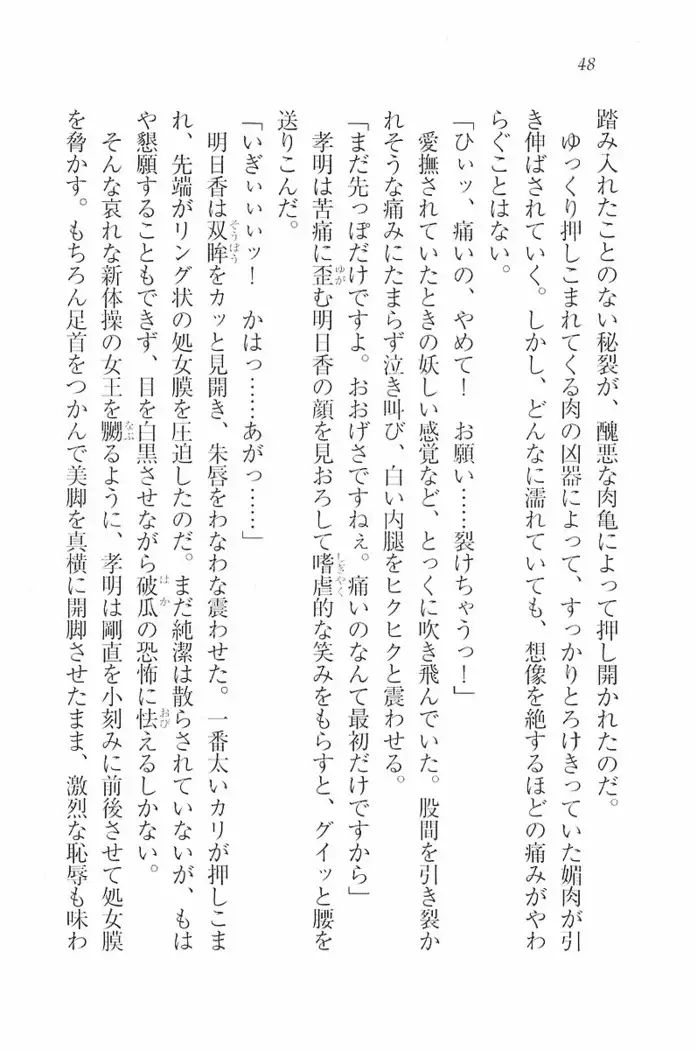 48
踏み入れたことのない秘裂が、醜悪な肉亀によって押し開かれたのだ。
ゆっくり押しこまれてくる肉の凶器によって、すっかりとろけきっていた媚肉が引
き伸ばされていく。しかし、どんなに濡れていても、想像を絶するほどの痛みがやわ
らぐことはない。
「ひぃッ、痛いの、やめて！　お願い……裂けちゃうっ！」
愛撫されていたときの妖しい感覚など、とっくに吹き飛んでいた。股間を引き裂か
れそうな痛みにたまらず泣き叫び、白い内腿をヒクヒクと震わせる。
「まだ先っぽだけですよ。おおげさですねぇ。痛いのなんて最初だけですから」
孝明は苦痛に歪む明日香の顔を見おろして嗜虐的な笑みをもらすと、グイッと腰を
送りこんだ。
「いぎぃぃぃッ！　かはっ……あがっ……」
明日香は双眸をカッと見開き、朱唇をわなわな震わせた。一番太いカリが押しこま
れ、先端がリング状の処女膜を圧迫したのだ。まだ純潔は散らされていないが、もは
や懇願することもできず、目を白黒させながら破瓜の恐怖に怯えるしかない。
そんな哀れな新体操の女王を嬲るように、孝明は剛直を小刻みに前後させて処女膜
を脅かす。もちろん足首をつかんで美脚を真横に開脚させたまま、激烈な恥辱も味わ